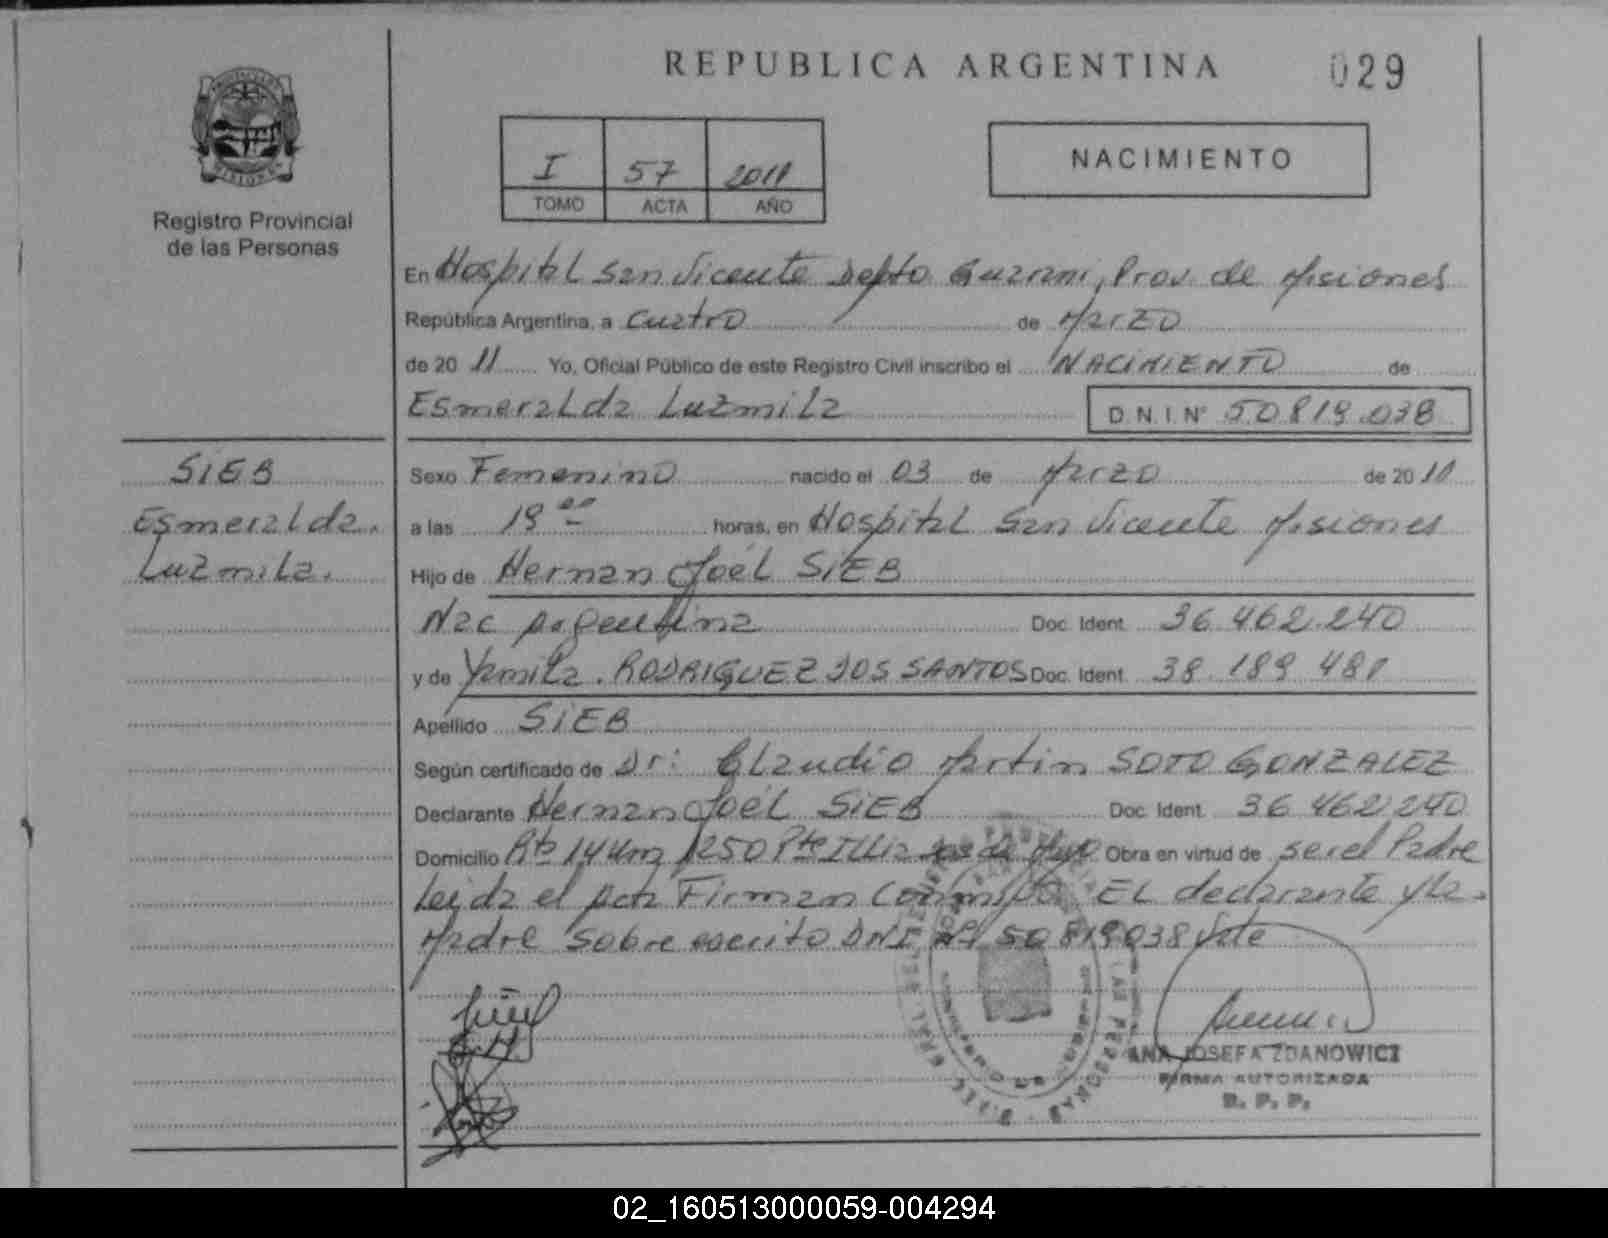 REPUBLICA ARGENTINA
029
Registro Provincial
de las Personas
I 57 2011
TOMO ACTA AÑO
NACIMIENTO
En Hospital San Vicente Depto Guarani, Prov. de Misiones
República Argentina, a Cuatro de Marzo
de 20 11 Yo, Oficial Público de este Registro Civil inscribo el NACIMIENTO de
Esmeralda Luzmila D.N.I. Nº 50.819.038
SIEB
Esmeralda.
Luzmila.
Sexo Femenino nacido el 03 de Marzo de 20 11
a las horas, en Hospital San Vicente Misiones
Hijo de Hernan Joél SIEB
Nac Argentina Doc. Ident. 36.462.240
y de Yamila. RODRIGUEZ DOS SANTOS Doc. Ident. 38.189.481
Apellido SIEB
Según certificado de Dr: Claudio Martin SOTO GONZALEZ
Declarante Hernan Joél SIEB Doc. Ident. 36.462.240
Domicilio Rta 14 Km 1250 Pte Illia Obra en virtud de ser el Padre
Leida el Acta Firman Conmigo EL declarante y la.
Madre Sobre escrito DNI Nº 50819038 Vale
ANA JOSEFA ZDANOWICZ
FIRMA AUTORIZADA
R. P. P.
02_160513000059-004294